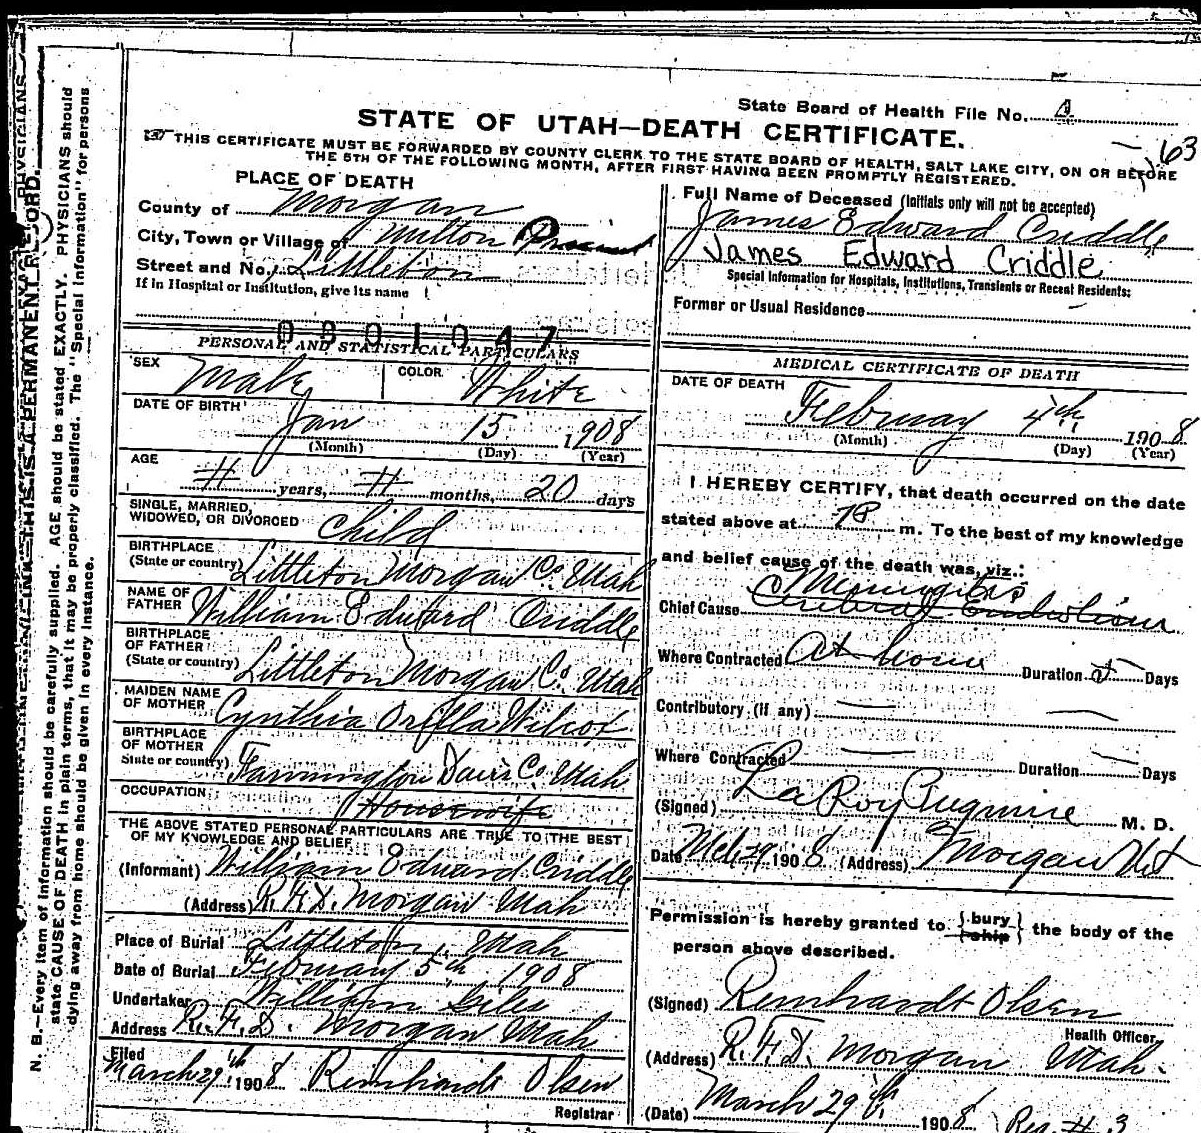 State Board of Health File No. 4
STATE OF UTAH—DEATH CERTIFICATE.
63
THIS CERTIFICATE MUST BE FORWARDED BY COUNTY CLERK TO THE STATE BOARD OF HEALTH, SALT LAKE CITY, ON OR BEFORE
THE 5TH OF THE FOLLOWING MONTH, AFTER FIRST HAVING BEEN PROMPTLY REGISTERED.
PLACE OF DEATH
County of Morgan
City, Town or Village of Milton Precinct
Street and No. Littleton
If in Hospital or Institution, give its name
Full Name of Deceased (Initials only will not be accepted)
James Edward Criddle
James Edward Criddle
Special Information for Hospitals, Institutions, Transients or Recent Residents:
Former or Usual Residence
PERSONAL AND STATISTICAL PARTICULARS
SEX Male COLOR White
DATE OF BIRTH Jan 15 1908
(Month) (Day) (Year)
AGE years, months, 20 days
SINGLE, MARRIED,
WIDOWED, OR DIVORCED child
BIRTHPLACE
(State or country) Littleton Morgan Co. Utah
NAME OF
FATHER William Edward Criddle
BIRTHPLACE
OF FATHER
(State or country) Littleton Morgan Co. Utah
MAIDEN NAME
OF MOTHER Cynthia Orilla Wilcox
BIRTHPLACE
OF MOTHER
State or country) Farmington Davis Co. Utah
OCCUPATION Housewife
THE ABOVE STATED PERSONAL PARTICULARS ARE TRUE TO THE BEST
OF MY KNOWLEDGE AND BELIEF
(Informant) William Edward Criddle
(Address) R.F.D. Morgan Utah
Place of Burial Littleton, Utah
Date of Burial February 5th 1908
Undertaker William Giles
Address R.F.D. Morgan Utah
Filed
March 29th 1908 Reinhardt Olsen
Registrar
MEDICAL CERTIFICATE OF DEATH
DATE OF DEATH February 4th 1908
(Month) (Day) (Year)
I HEREBY CERTIFY, that death occurred on the date
stated above at m. To the best of my knowledge
and belief cause of the death was, viz.:
Meningitis
Chief Cause Cerebral
Where Contracted At home Duration Days
Contributory (if any)
Where Contracted Duration Days
(Signed) LaRoy Pugmire M. D.
Date Mch 29 1908 (Address) Morgan Ut
Permission is hereby granted to {bury ship} the body of the
person above described.
(Signed) Reinhardt Olsen
Health Officer
(Address) R.F.D. Morgan Utah.
(Date) March 29th 1908 Reg. # 3
N. B.—Every item of information should be carefully supplied. AGE should be stated EXACTLY. PHYSICIANS should
state CAUSE OF DEATH in plain terms, that it may be properly classified. The "Special Information" for persons
dying away from home should be given in every instance.